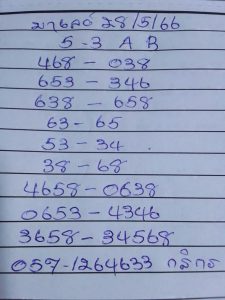 มาเลย์ 28/5/66
5-3 A B
468-038
653-346
638-658
63-65
53-34
38-68
4658-0638
0653-4346
3658-34568
057-1264633 กสิกร